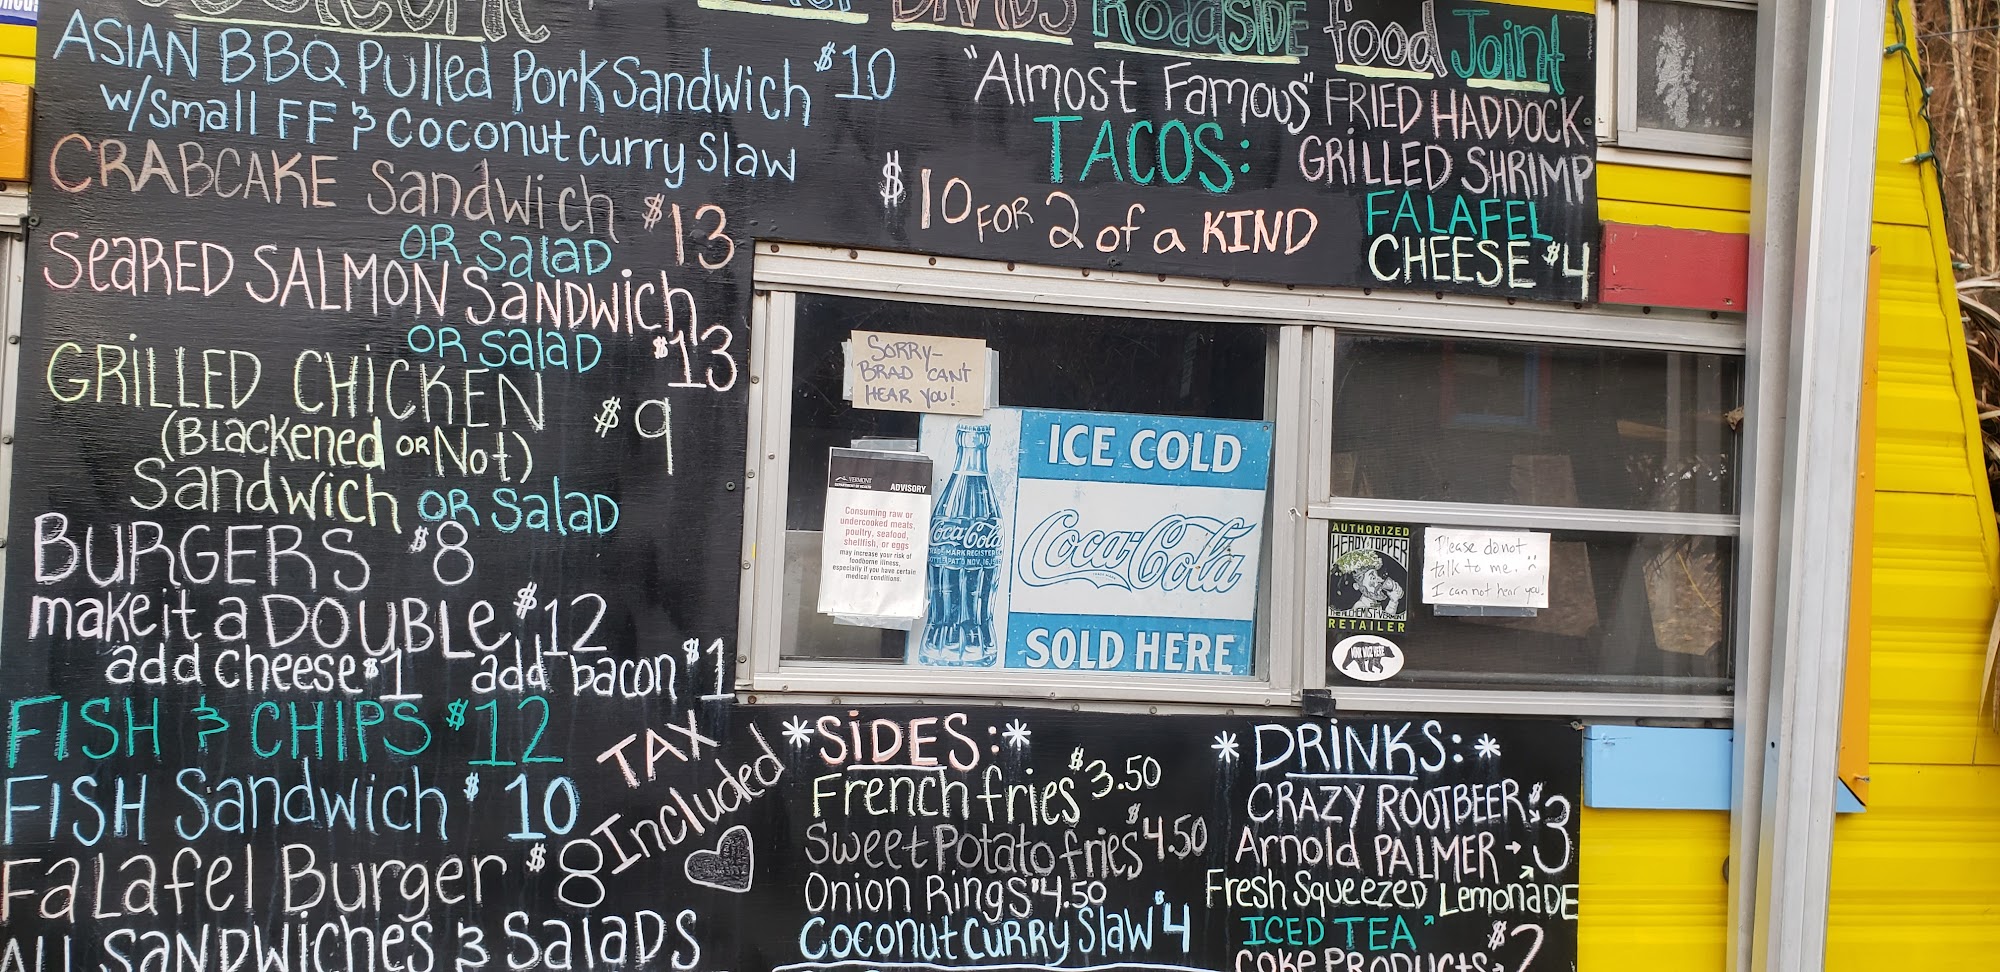 Roadside food Joint
ASIAN BBQ Pulled Pork Sandwich $10
w/Small FF & Coconut Curry Slaw
CRABCAKE Sandwich $13
OR Salad
SEARED SALMON SANDWich
OR Salad $13
GRILLED CHICKEN $9
(Blackened OR Not)
Sandwich OR Salad
BURGERS $8
make it a DOUBLE $12
add cheese $1 add bacon $1
FISH & CHIPS $12
FISH Sandwich $10
FaLafel Burger $8
ALL SANDWICHES & SalaDS
TAX
Included
"Almost Famous" FRIED HADDOCK
TACOS: GRILLED SHRIMP
$10 FOR 2 of a KIND FALAFEL
CHEESE $4
SORRY-
BRAD CAN'T
HEAR YOU!
VERMONT
DEPARTMENT OF HEALTH
ADVISORY
Consuming raw or
undercooked meats,
poultry, seafood,
shellfish, or eggs
may increase your risk of
foodborne illness,
especially if you have certain
medical conditions.
ICE COLD
Coca-Cola
TRADE-MARK REGISTERED
Coca-Cola
SOLD HERE
AUTHORIZED
HEADY-TOPPER
RETAILER
Please do not
talk to me.
I can not hear you!
*SIDES:*
French fries $3.50
Sweet Potato fries $4.50
Onion Rings $4.50
Coconut Curry Slaw $4
*DRINKS:*
CRAZY ROOTBEER $3
Arnold PALMER
Fresh Squeezed LemonaDE
ICED TEA
COKE PRODUCTS $2